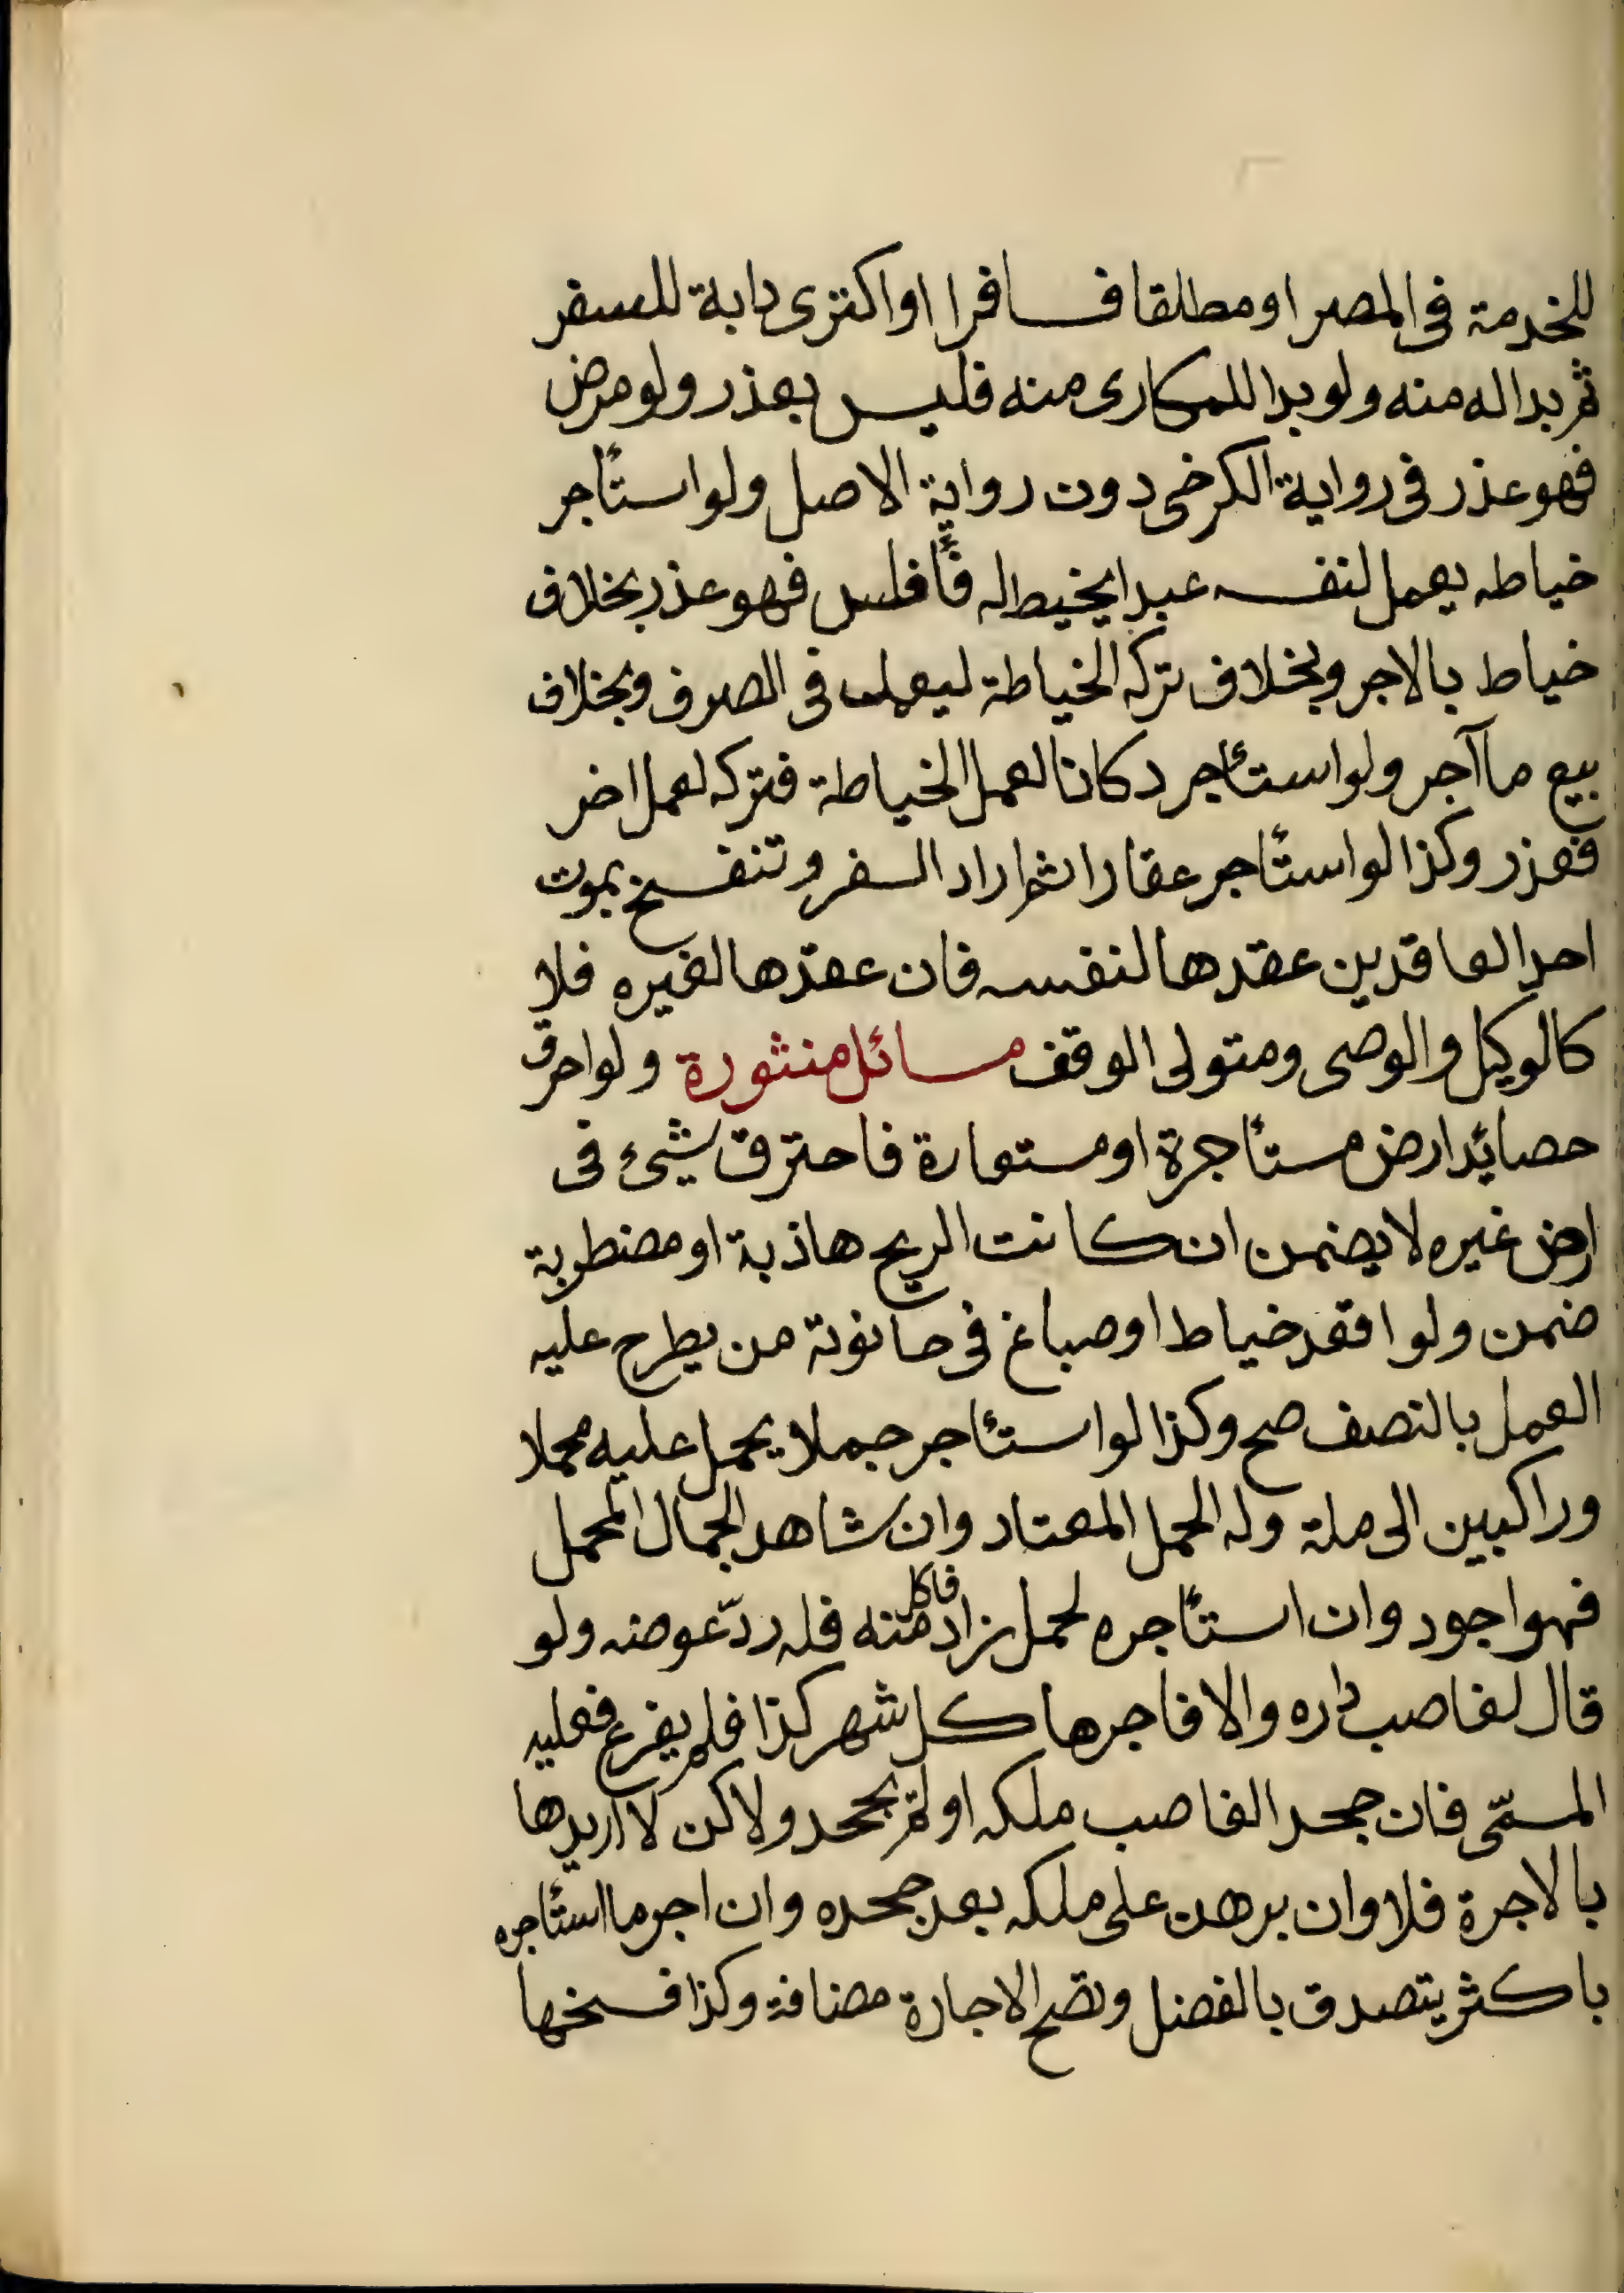 للخدمة فى المصر او مطلقا فسافرا او اكترى دابة للسفر
ثم بدا له منه ولو بدا للمكارى منه فليس بعذر ولو مرض
فهو عذر فى رواية الكرخى دون رواية الاصل ولو استأجر
خياطه يعمل لنفسه عبدا يخيط له فأفلس فهو عذر بخلاف
خياط بالاجر وبخلاف تركه الخياطة ليعمل فى الصرف وبخلاف
بيع ما آجر ولو استأجر دكانا لعمل الخياطة فتركه لعمل اخر
فعذر وكذا لو استأجر عقارا ثم اراد السفر وتنفسخ بموت
احد العاقدين عقدها لنفسه فان عقدها لغيره فلا
كالوكيل والوصى ومتولى الوقف مسائل منثورة ولو احرق
حصائد ارض مستأجرة او مستعارة فاحترق شيئ فى
ارض غيره لا يضمن ان كانت الريح هاذبة او مضطربة
ضمن ولو اقعد خياط او صباغ فى حانوتة من يطرح عليه
العمل بالنصف صح وكذا لو استأجر جملا يحمل عليه محملا
وراكبين الى ملة وله الحمل المعتاد وان شاهد الجمال المحمل
فهو اجود وان استأجره لحمل زاد فاكل منه فله ردّ عوضه ولو
قال لغاصب داره والا فاجرها كل شهر كذا فلم يفرغ فعليه
المسمّى فان جحد الغاصب ملكه او لم يجحد ولاكن لا اريدها
بالاجرة فلا وان برهن على ملكه بعد جحده وان اجر ما استأجره
باكثر يتصدق بالفضل وتصح الاجارة مضافة وكذا فسخها